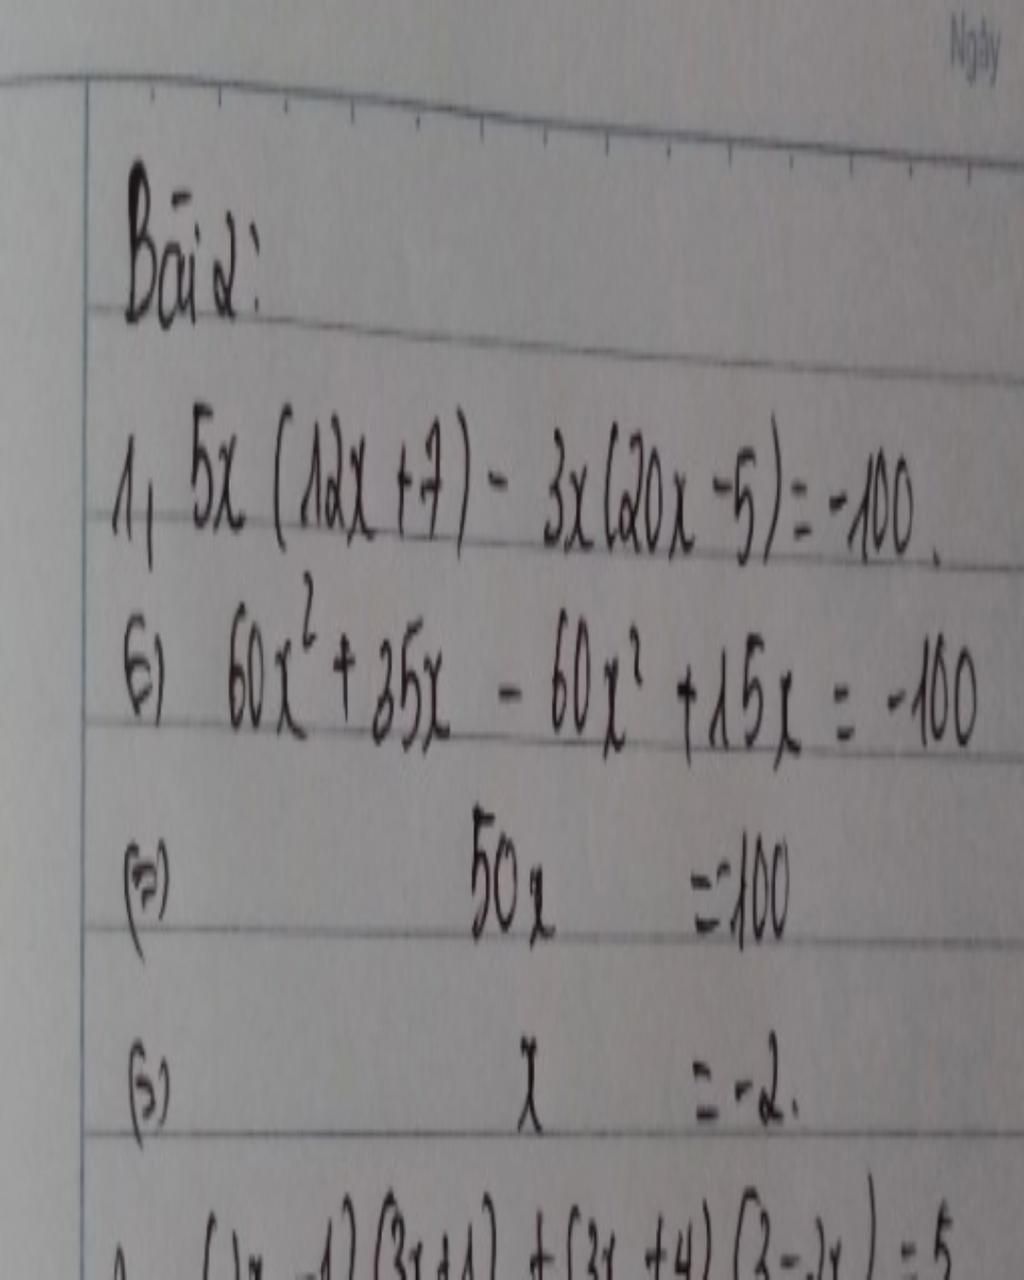 Ngày
Bài 2:
1, 5x (12x + 7) - 3x(20x - 5) = -100.
⇔ 60x² + 35x - 60x² + 15x = -100
⇔ 50x = -100
⇔ x = -2.